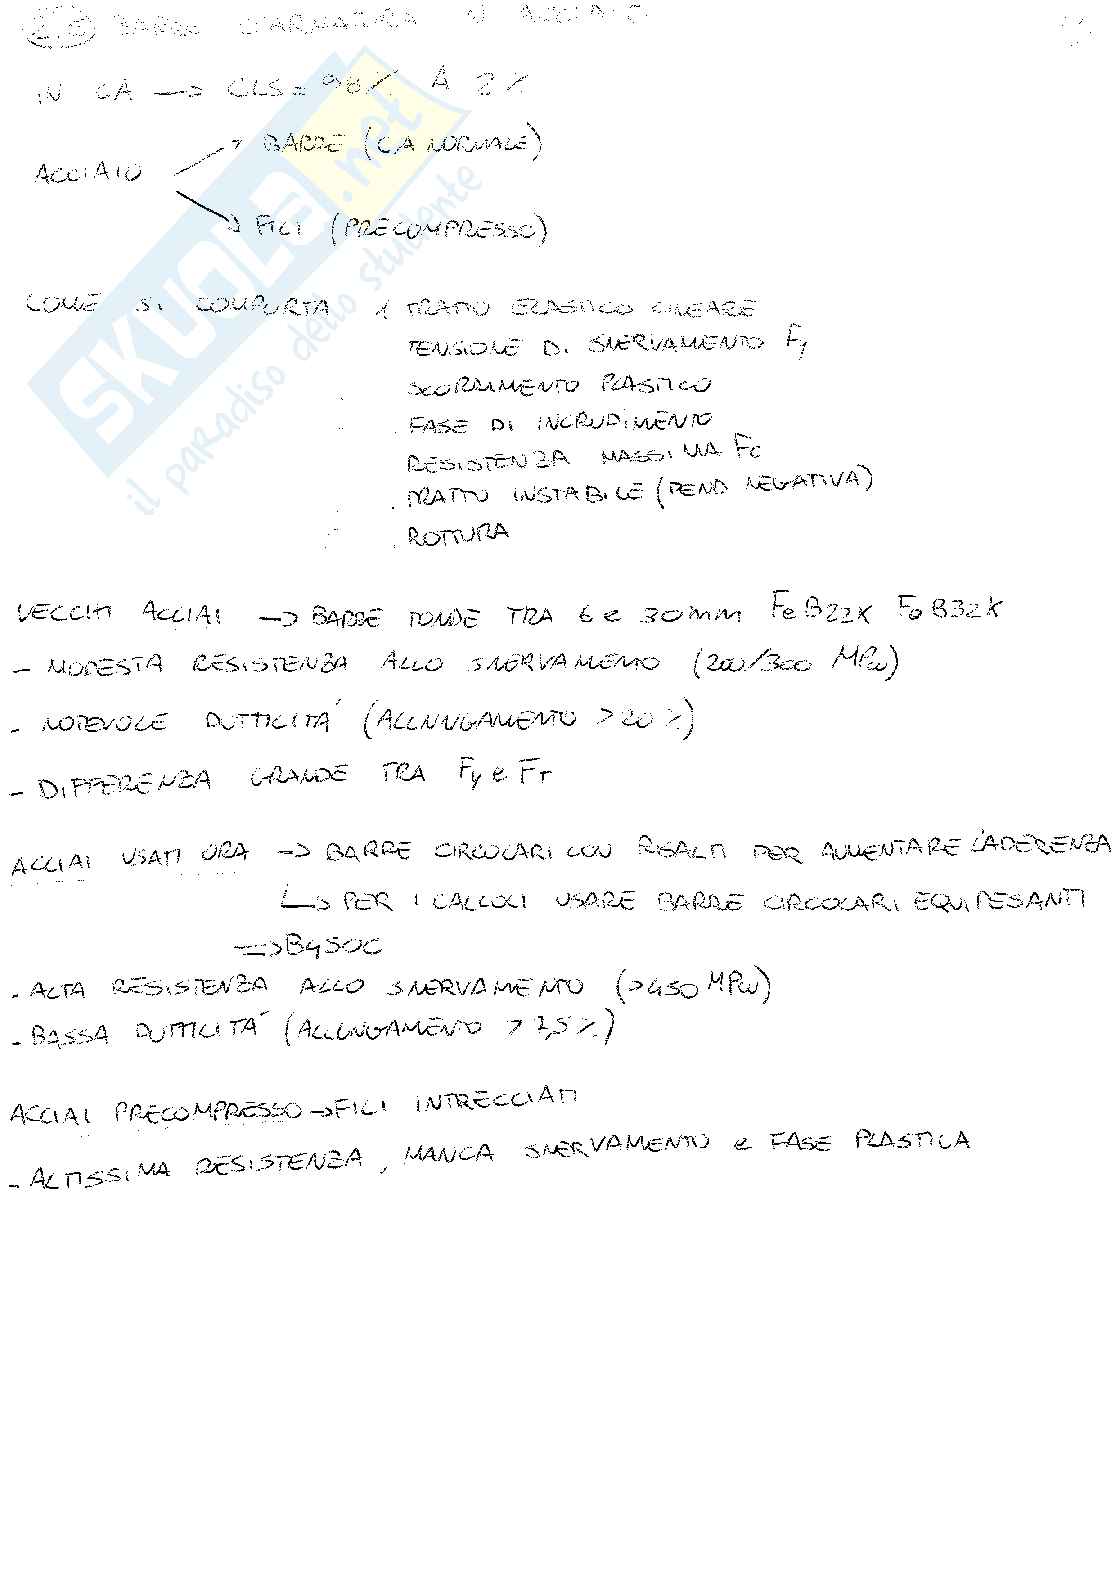 BARRE D'ARMATURA IN ACCIAIO
IN CA → CLS = 98% A 2%
ACCIAIO
→ BARRE (CA NORMALE)
→ FILI (PRECOMPRESSO)
SKUOLA.net
il paradiso dello studente
COME SI COMPORTA 1 TRATTO ELASTICO LINEARE
TENSIONE DI SNERVAMENTO Fy
SCORRIMENTO PLASTICO
FASE DI INCRUDIMENTO
RESISTENZA MASSIMA
TRATTO INSTABILE (PEND NEGATIVA)
ROTTURA
VECCHI ACCIAI → BARRE TONDE TRA 6 e 30mm FeB22K FeB32K
- MODESTA RESISTENZA ALLO SNERVAMENTO (200/300 MPa)
- NOTEVOLE DUTTILITÁ (ALLUNGAMENTO > 20%)
- DIFFERENZA GRANDE TRA Fy e FT
ACCIAI USATI ORA → BARRE CIRCOLARI CON RISALTI PER AUMENTARE L'ADERENZA
↳ PER I CALCOLI USARE BARRE CIRCOLARI EQUIPESANTI
⇒ B450C
- ALTA RESISTENZA ALLO SNERVAMENTO (>450 MPa)
- BASSA DUTTILITÁ (ALLUNGAMENTO > 7,5%)
ACCIAI PRECOMPRESSO → FILI INTRECCIATI
- ALTISSIMA RESISTENZA, MANCA SNERVAMENTO e FASE PLASTICA